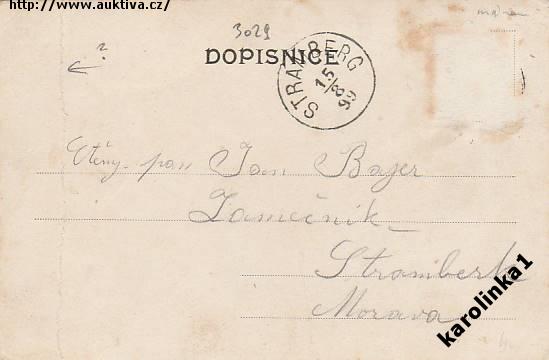 http://www.auktiva.cz/
3029
?
DOPISNICE
STRAMBERG
15/8 99
Ctěný pan Jan Bajer
Zámečník
Stramberk
Morava
karolinka1